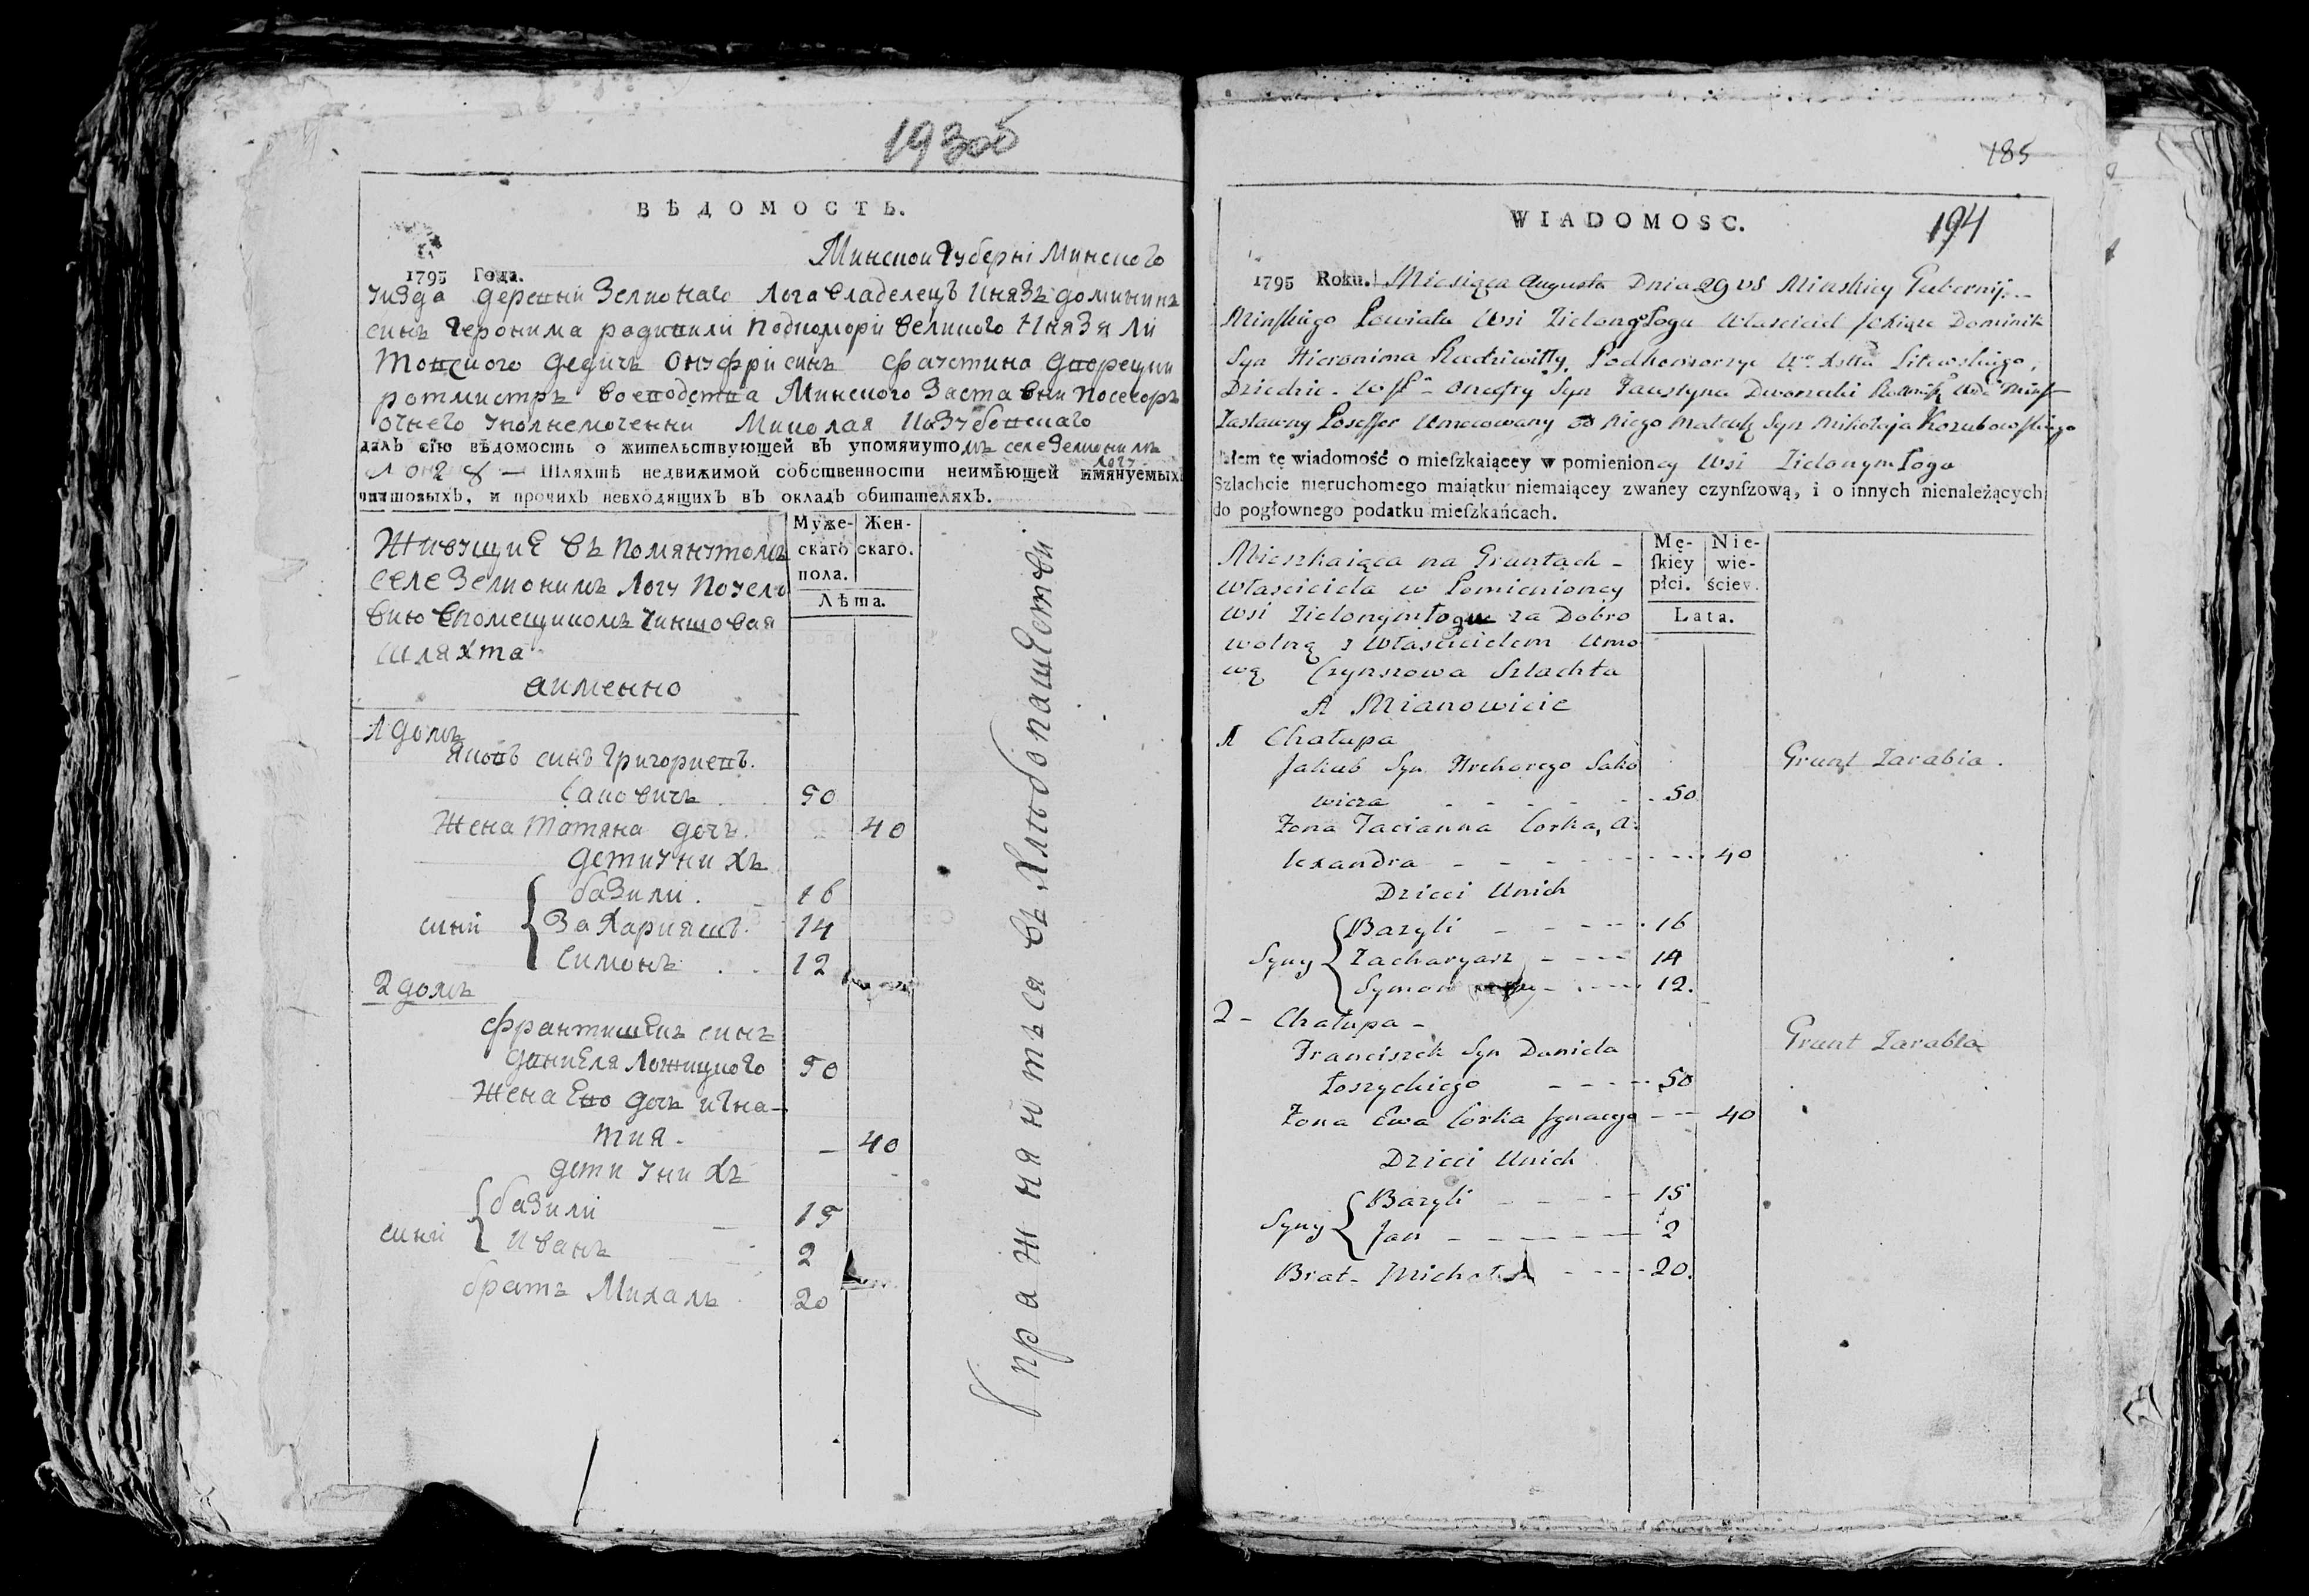 193об
ВѢДОМОСТЬ.
Минской Губерні Минского
1795 Года.
уизда деревни Зелионаго Лога владелецъ Князъ доминикъ
синъ Геронима радивили подкоморіи великого Князя Ли
товского дедичъ Онуфри синъ Фаустина дворецки
ротмистръ воеводства Минского Заставни посесоръ
от него уполнемоченни Миколая Козубовскаго
далъ сїю вѣдомость о жительствующей въ упомянутомъ селе Зелионимъ
Логу
— Шляхтѣ недвижимой собственности неимѣющей имянуемыхъ
чиншовыхъ, и прочихъ невходящихъ въ окладъ обитателяхъ.
Муже-скаго пола. Жен-скаго.
Лѣта.
Живущие въ помянутомъ
селе Зелионимъ Логу по усло
вию спомещикомъ Чиншовая
шляхта
аименно
1 домъ
Яковъ синъ Григориевъ.
Саковичъ 50
Жена Татяна дочъ. 40
дети уни хъ
сини
базили. 16
Захарияшъ. 14
Симонъ 12
2 домъ
Франтишекъ синъ
даниеля Ложицкого 50
Жена Ева дочъ игна-
тия. — 40
дети уни хъ
сини
базилі 15
Иванъ 2
братъ Михалъ 20
Упражняютъся въ хлѣбопашестви
185
194
WIADOMOSC.
1795 Roku. Miesiąca Augusta Dnia 29 vs Minskiey Gubernij
Minskiego Powiatu Wsi Zielonego Ługu Własciciel Xiąże Dominik
Syn Hieronima Radziwiłły, Podkomorzye Wo Xstta Litewskiego,
Dziedzic. Onufry Syn Faustyna Dworzecki Rotmistz Wdz Minsk
Zastawny Possessor Umocowany od niego Mateusz Syn Mikołaja Kozubowskiego
Dałem tę wiadomość o mieſzkaiącey w pomienioncy Wsi Zielonym Ługu
Szlachcie nieruchomego maiątku niemaiącey zwaney czynſzową, i o innych nienależących
do pogłownego podatku mieſzkańcach.
Mę-ſkiey płci. Nie-wie-ściey.
Lata.
Mieszkaiąca na Gruntach
Własciciela w Pomienioney
Wsi Zielonym Ługu za Dobro
wolną z Włascicielem Umo
wą Czynszowa Szlachta
A Mianowicie
1 Chałupa
Jakub Syn Hrehorego Sako
wicza 50
Grunt Zarabia.
Zona Tacianna Corka, A
lexandra 40
Dzieci Unich
Syny
Bazyli 16
Zacharyasz 14
Symon 12.
2 - Chałupa -
Franciszek Syn Daniela
Łoszyckiego 50
Grunt Zarabia
Zona Ewa Corka Jgnacego 40
Dzieci Unich
Syny
Bazyli 15
Jan 2
Brat Michał 20.